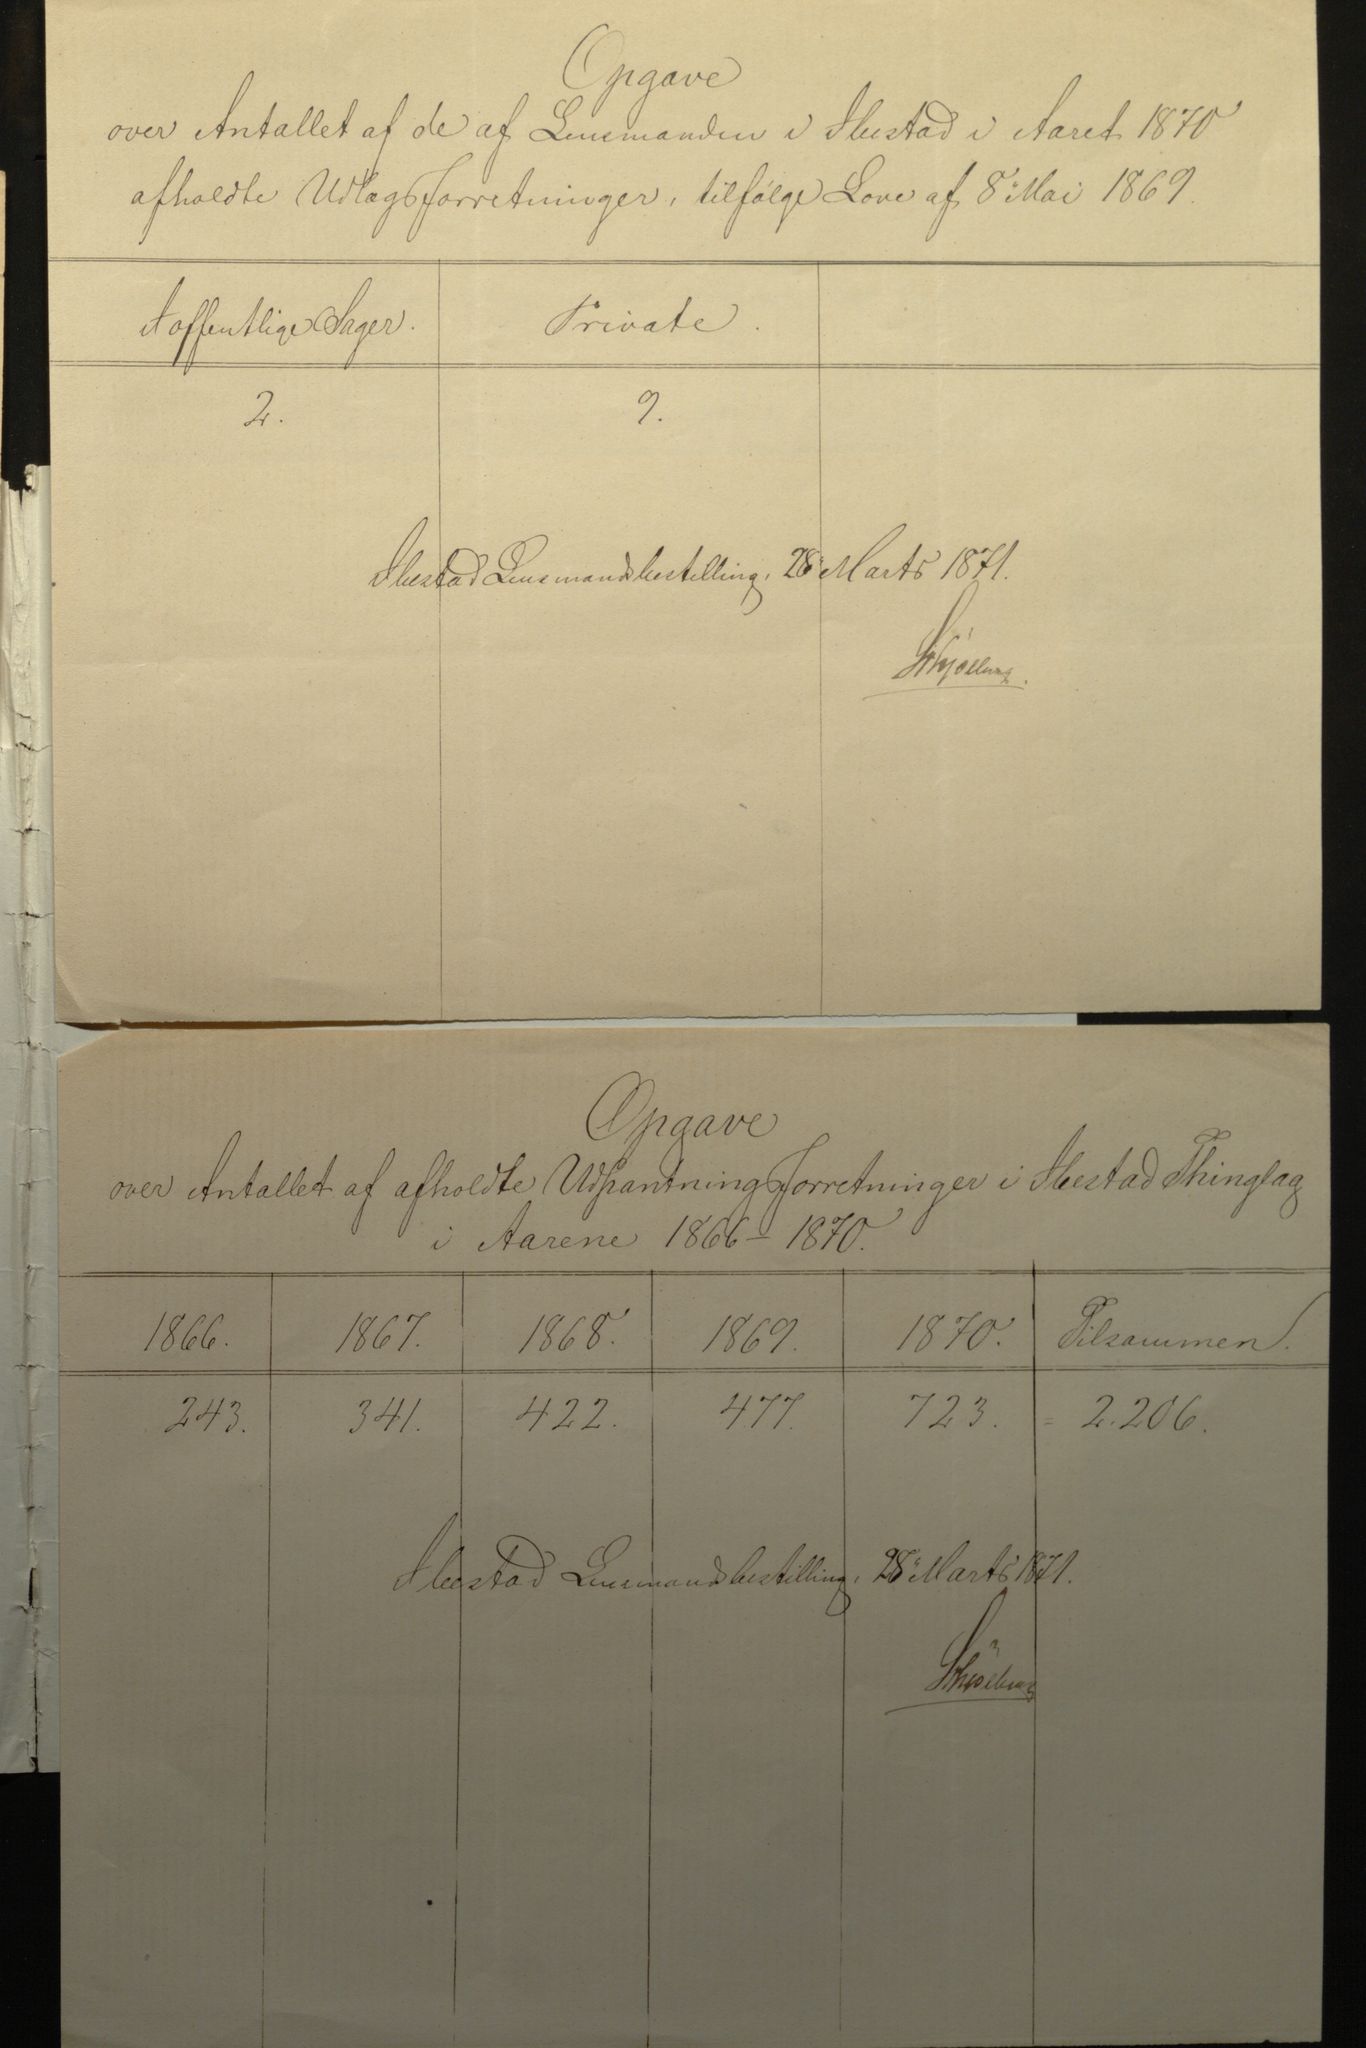 Opgave
over Antallet af de af Lensmanden i Ibestad i Aaret 1870
afholdte Udlagsforretninger, tilfølge Love af 8 Mai 1869.
I offentlige Sager. Private.
2. 9.
Ibestad Lensmandsbestilling, 28 Marts 1871.
Opgave
over Antallet af afholdte Udpantningsforretninger i Ibestad Thinglag
i Aarene 1866 – 1870.
1866. 1867. 1868. 1869. 1870. Tilsammen.
243. 341. 422. 477. 723. = 2.206.
Ibestad Lensmandsbestilling, 28 Marts 1871.